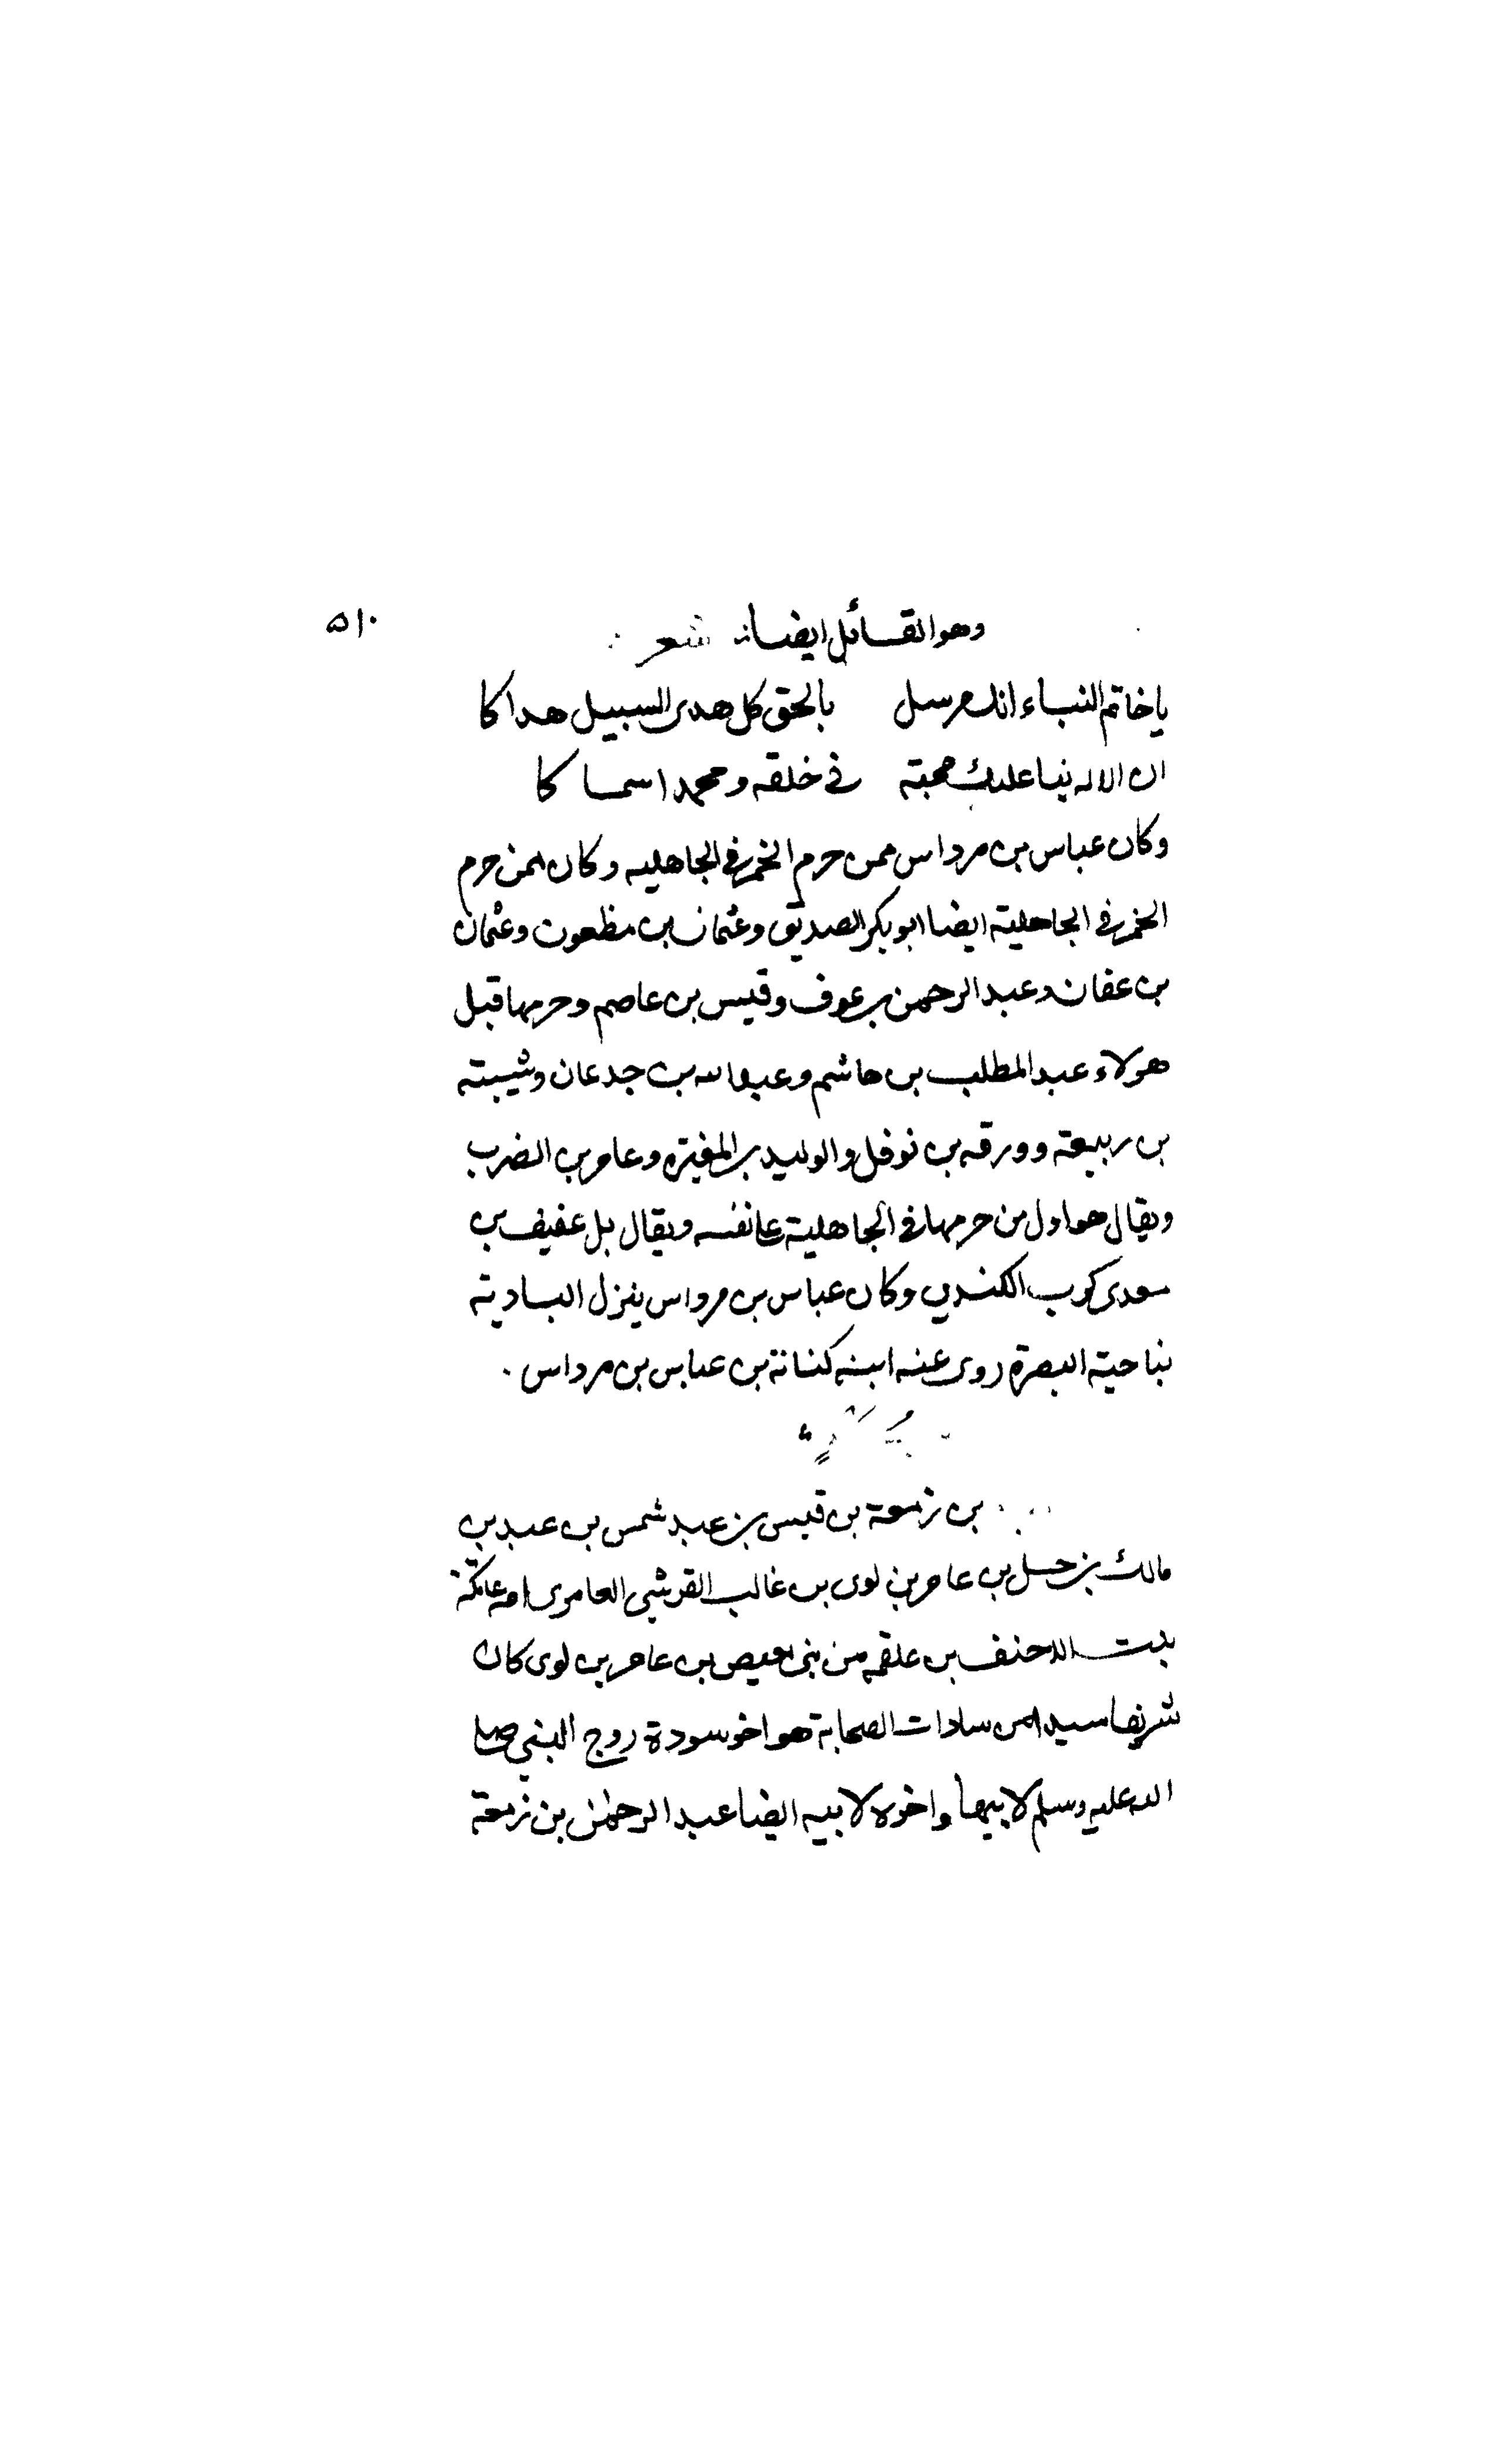 ٥١٠
وهو القائل ايضا شعر
يا خاتم النباء انك مرسل بالحق كل هدى السبيل هداكا
ان الاله بنا عليك محبة في خلقه ومحمدا سماكا
وكان عباس بن مرداس ممن حرم الخمر في الجاهلية وكان ممن حرم
الخمر في الجاهلية ايضا ابو بكر الصديق وعثمان بن مظعون وعثمان
بن عفان وعبد الرحمن بن عوف وقيس بن عاصم وحرمها قبل
هولاء عبد المطلب بن هاشم وعبد الله بن جدعان وشيبة
بن ربيعة وورقه بن نوفل والوليد بن المغيرة وعامر بن الضرب
ويقال هو اول من حرمها في الجاهلية على نفسه ويقال بل عفيف بن
معدى كرب الكندي وكان عباس بن مرداس ينزل البادية
بناحية البصرة روى عنه ابنه كنانة بن عباس بن مرداس .
بن زمعة بن قيس بن عبد شمس بن عبد بن
مالك بن حسل بن عامر بن لوى بن غالب القرشي العامرى امه عاتكة
بنت الاحنف بن علقمه من بنى معيص بن عامر بن لوى كان
شريفا سيدا من سادات الصحابة هو اخو سودة زوج النبي صلى
الله عليه وسلم لابيها واخوه لابيه ايضا عبد الرحمن بن زمعة